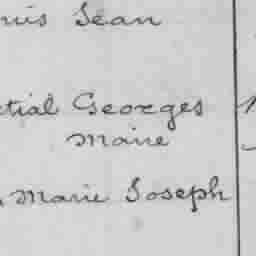 uis Jean
tial Georges
Marie
Marie Joseph